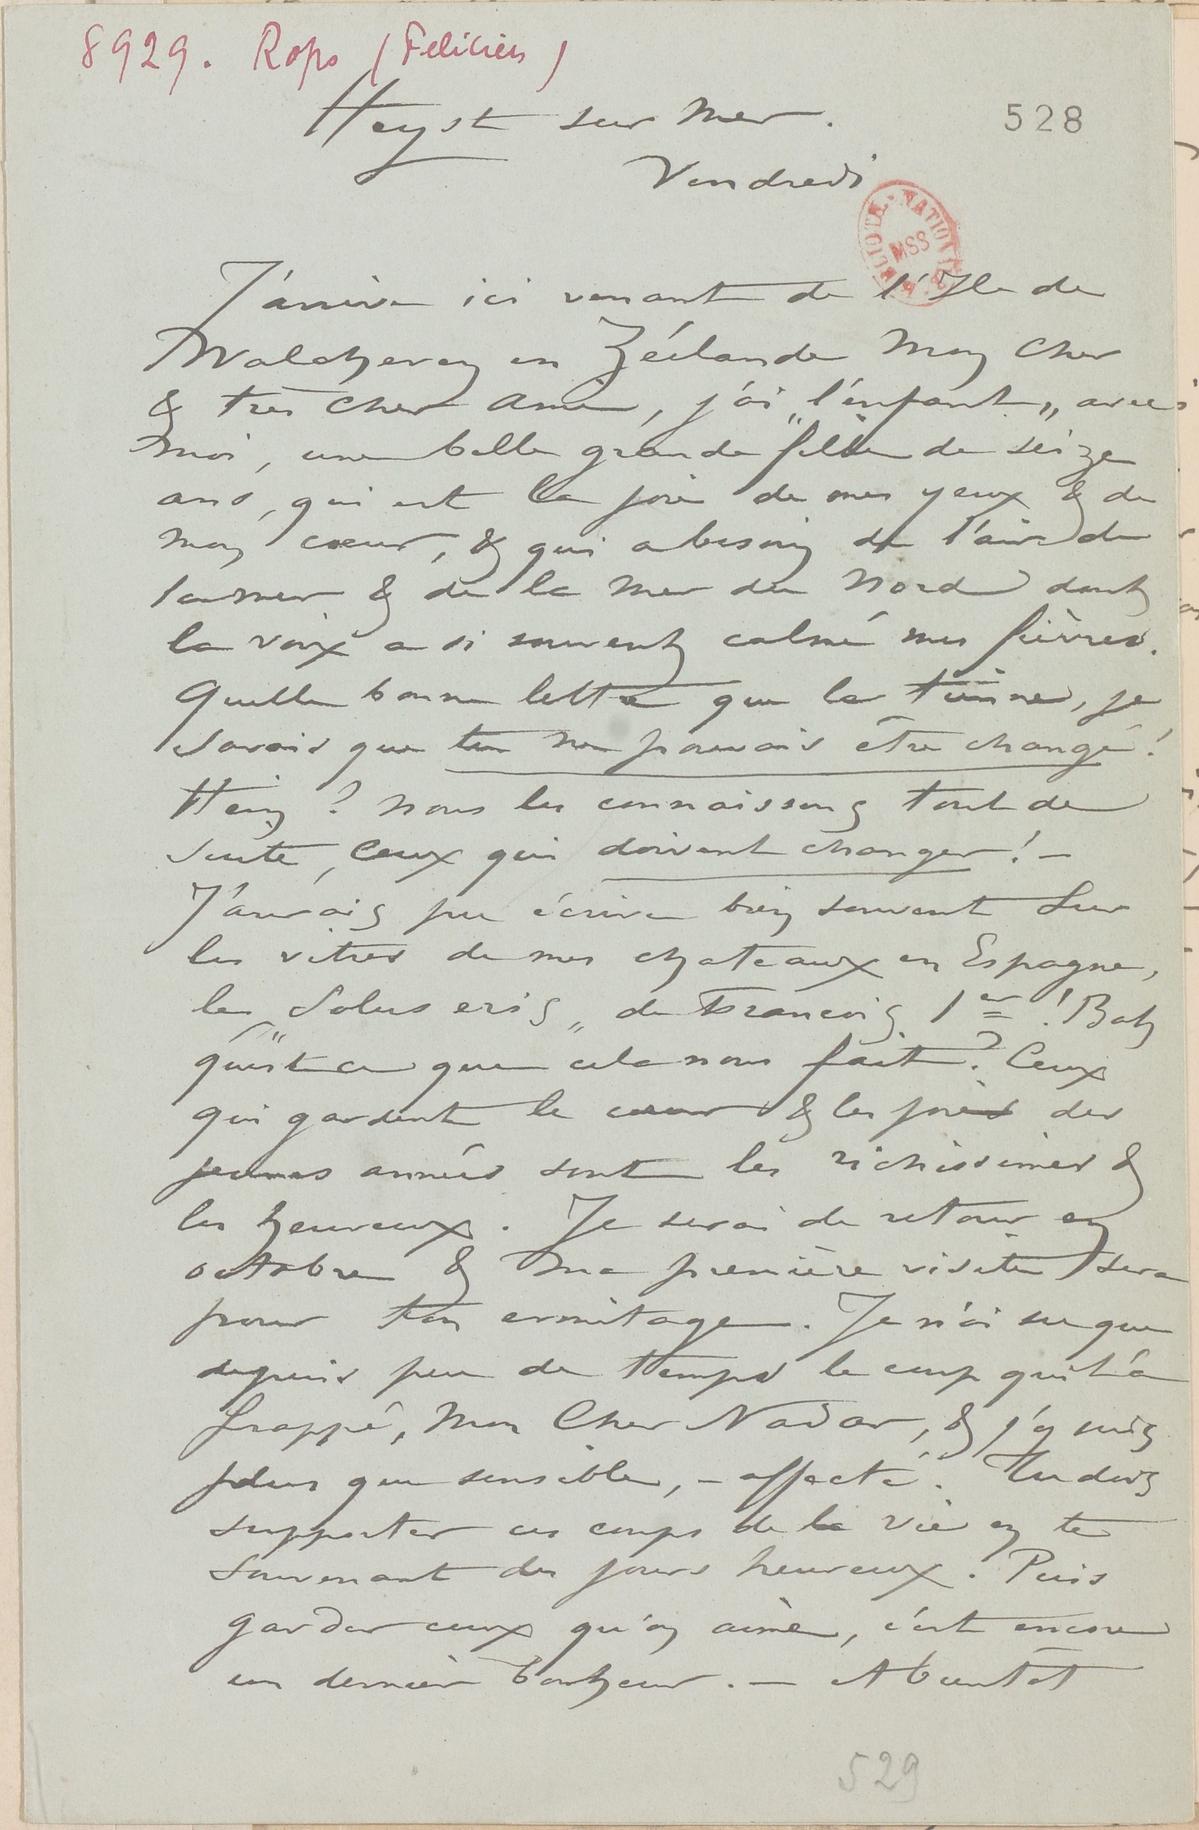 8929. Rops (Félicien)
Heyst sur Mer.
528
Vendredi
BIBLIOTH. NATIONALE MSS
J'arrive ici venant de l'Ile de
Walcheren en Zéelande Mon Cher
& très cher Ami, j'ai „l'enfant„ avec
moi, une belle grande fille de seize
ans, qui est la joie de mes yeux & de
mon cœur, & qui a besoin de l'air de
la mer & de la Mer du Nord dont
la voix a si souvent calmé mes fièvres.
Quelle bonne lettre que la tienne, je
savais que tu ne pouvais être changé!
Hein? nous les connaissons tout de
suite, ceux qui doivent changer! –
J'aurais pu écrire bien souvent sur
les vitres de mes chateaux en Espagne,
le „Solus eris„ de François 1er! Bah
qu'est ce que cela nous fait? Ceux
qui gardent le cœur & les joies des
jeunes années sont les richissimes &
les heureux. Je serai de retour en
octobre & ma première visite sera
pour ton ermitage. Je n'ai su que
depuis peu de temps le coup qui t'a
frappé, Mon Cher Nadar, & j'y suis
plus que sensible, – affecté. Tu dois
supporter ces coups de la vie en te
souvenant des jours heureux. Puis
garder ceux qu'on aime, c'est encore
un dernier bonheur. – A bientôt
529